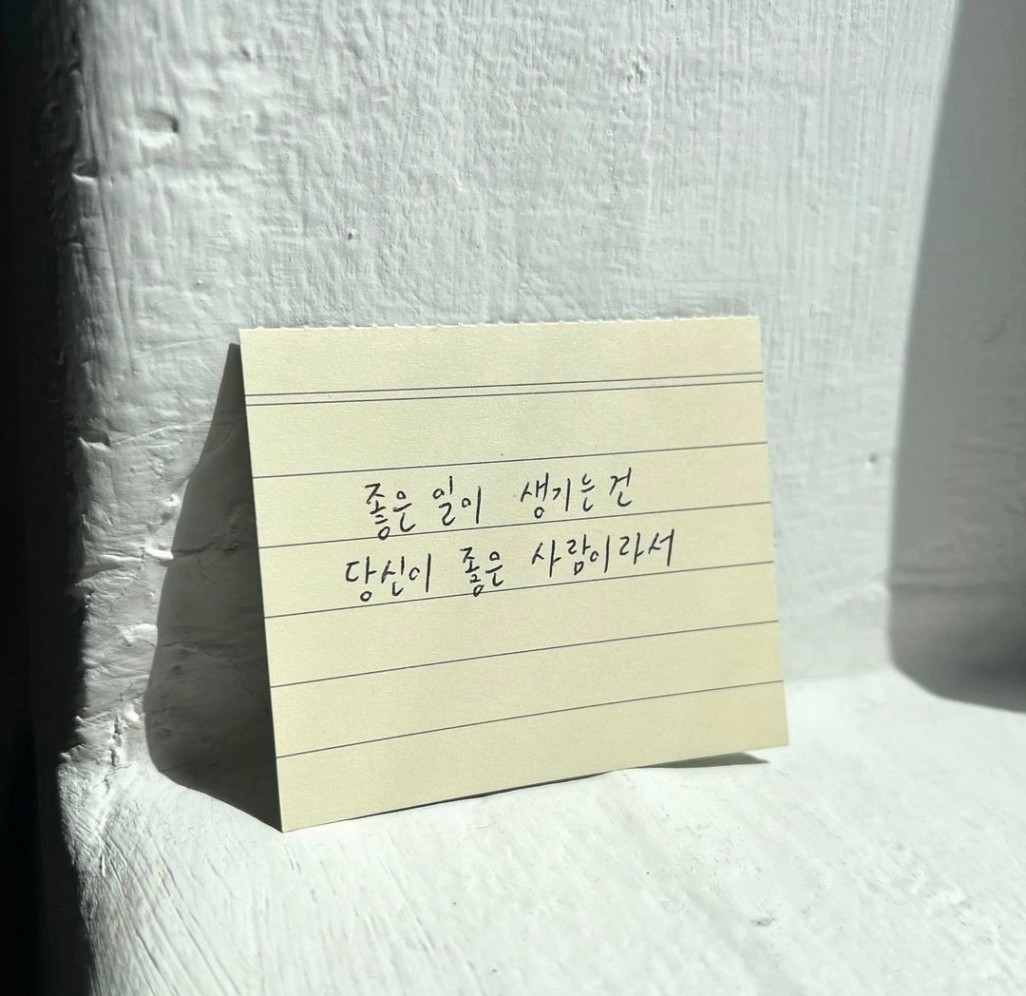 좋은 일이 생기는건
당신이 좋은 사람이라서